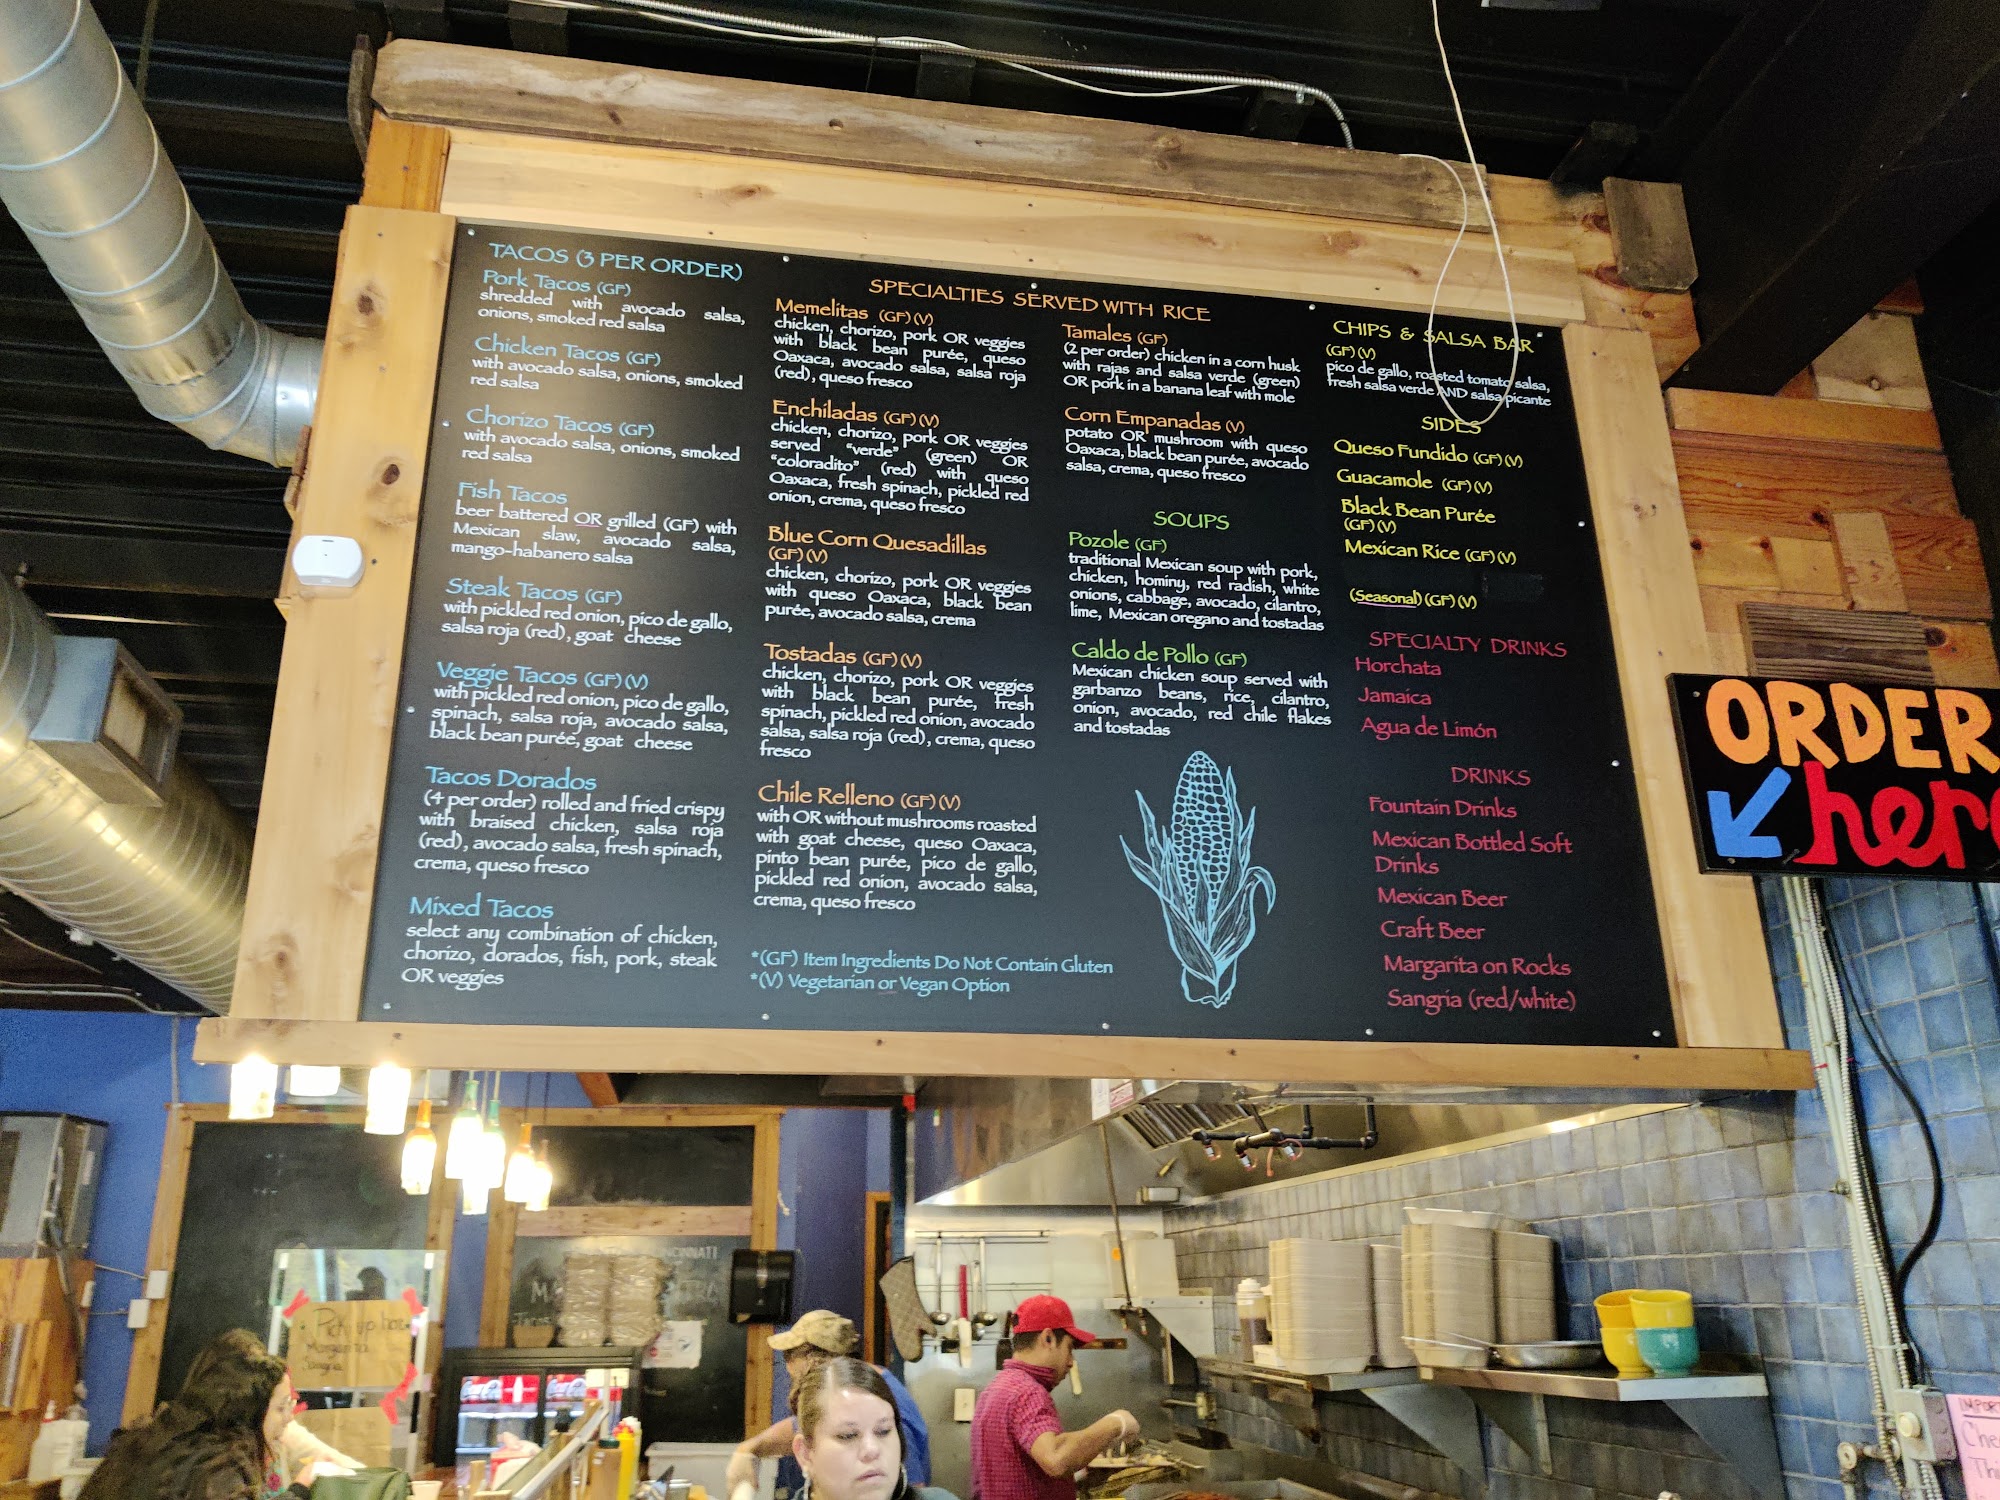 TACOS (3 PER ORDER)
Pork Tacos (GF)
shredded with avocado salsa,
onions, smoked red salsa
Chicken Tacos (GF)
with avocado salsa, onions, smoked
red salsa
Chorizo Tacos (GF)
with avocado salsa, onions, smoked
red salsa
Fish Tacos
beer battered OR grilled (GF) with
Mexican slaw, avocado salsa,
mango-habanero salsa
Steak Tacos (GF)
with pickled red onion, pico de gallo,
salsa roja (red), goat cheese
Veggie Tacos (GF)(V)
with pickled red onion, pico de gallo,
spinach, salsa roja, avocado salsa,
black bean purée, goat cheese
Tacos Dorados
(4 per order) rolled and fried crispy
with braised chicken, salsa roja
(red), avocado salsa, fresh spinach,
crema, queso fresco
Mixed Tacos
select any combination of chicken,
chorizo, dorados, fish, pork, steak
OR veggies
SPECIALTIES SERVED WITH RICE
Memelitas (GF)(V)
chicken, chorizo, pork OR veggies
with black bean purée, queso
Oaxaca, avocado salsa, salsa roja
(red), queso fresco
Enchiladas (GF)(V)
chicken, chorizo, pork OR veggies
served "verde" (green) OR
"coloradito" (red) with queso
Oaxaca, fresh spinach, pickled red
onion, crema, queso fresco
Blue Corn Quesadillas
(GF)(V)
chicken, chorizo, pork OR veggies
with queso Oaxaca, black bean
purée, avocado salsa, crema
Tostadas (GF)(V)
chicken, chorizo, pork OR veggies
with black bean purée, fresh
spinach, pickled red onion, avocado
salsa, salsa roja (red), crema, queso
fresco
Chile Relleno (GF)(V)
with OR without mushrooms roasted
with goat cheese, queso Oaxaca,
pinto bean purée, pico de gallo,
pickled red onion, avocado salsa,
crema, queso fresco
*(GF) Item Ingredients Do Not Contain Gluten
*(V) Vegetarian or Vegan Option
Tamales (GF)
(2 per order) chicken in a corn husk
with rajas and salsa verde (green)
OR pork in a banana leaf with mole
Corn Empanadas (V)
potato OR mushroom with queso
Oaxaca, black bean purée, avocado
salsa, crema, queso fresco
SOUPS
Pozole (GF)
traditional Mexican soup with pork,
chicken, hominy, red radish, white
onions, cabbage, avocado, cilantro,
lime, Mexican oregano and tostadas
Caldo de Pollo (GF)
Mexican chicken soup served with
garbanzo beans, rice, cilantro,
onion, avocado, red chile flakes
and tostadas
CHIPS & SALSA BAR
(GF)(V)
pico de gallo, roasted tomato salsa,
fresh salsa verde AND salsa picante
SIDES
Queso Fundido (GF)(V)
Guacamole (GF)(V)
Black Bean Purée
(GF)(V)
Mexican Rice (GF)(V)
(Seasonal)(GF)(V)
SPECIALTY DRINKS
Horchata
Jamaica
Agua de Limón
DRINKS
Fountain Drinks
Mexican Bottled Soft
Drinks
Mexican Beer
Craft Beer
Margarita on Rocks
Sangria (red/white)
ORDER
here
Pick up here
Margarita
Sangria
Coca-Cola